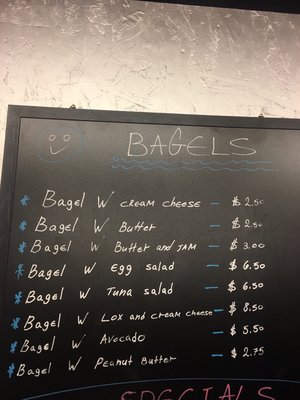 BAGELS
* Bagel W cream cheese - $ 2.50
* Bagel W Butter - $ 2.50
* Bagel W Butter and JAM - $ 3.00
* Bagel W Egg salad - $ 6.50
* Bagel W Tuna salad - $ 6.50
* Bagel W Lox and cream cheese - $ 8.50
* Bagel W Avocado - $ 5.50
* Bagel W Peanut Butter - $ 2.75
SPECIALS